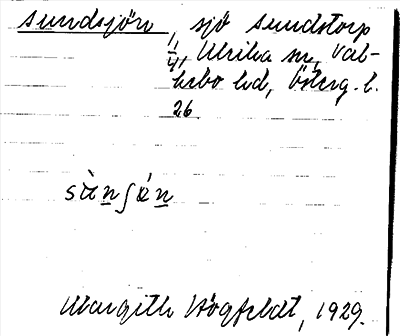 Sundsjön, sjö Sundstorp
1/4, Ulrika sn, Val-
kebo hd, Österg. l.
26
Margith Högfeldt, 1929.